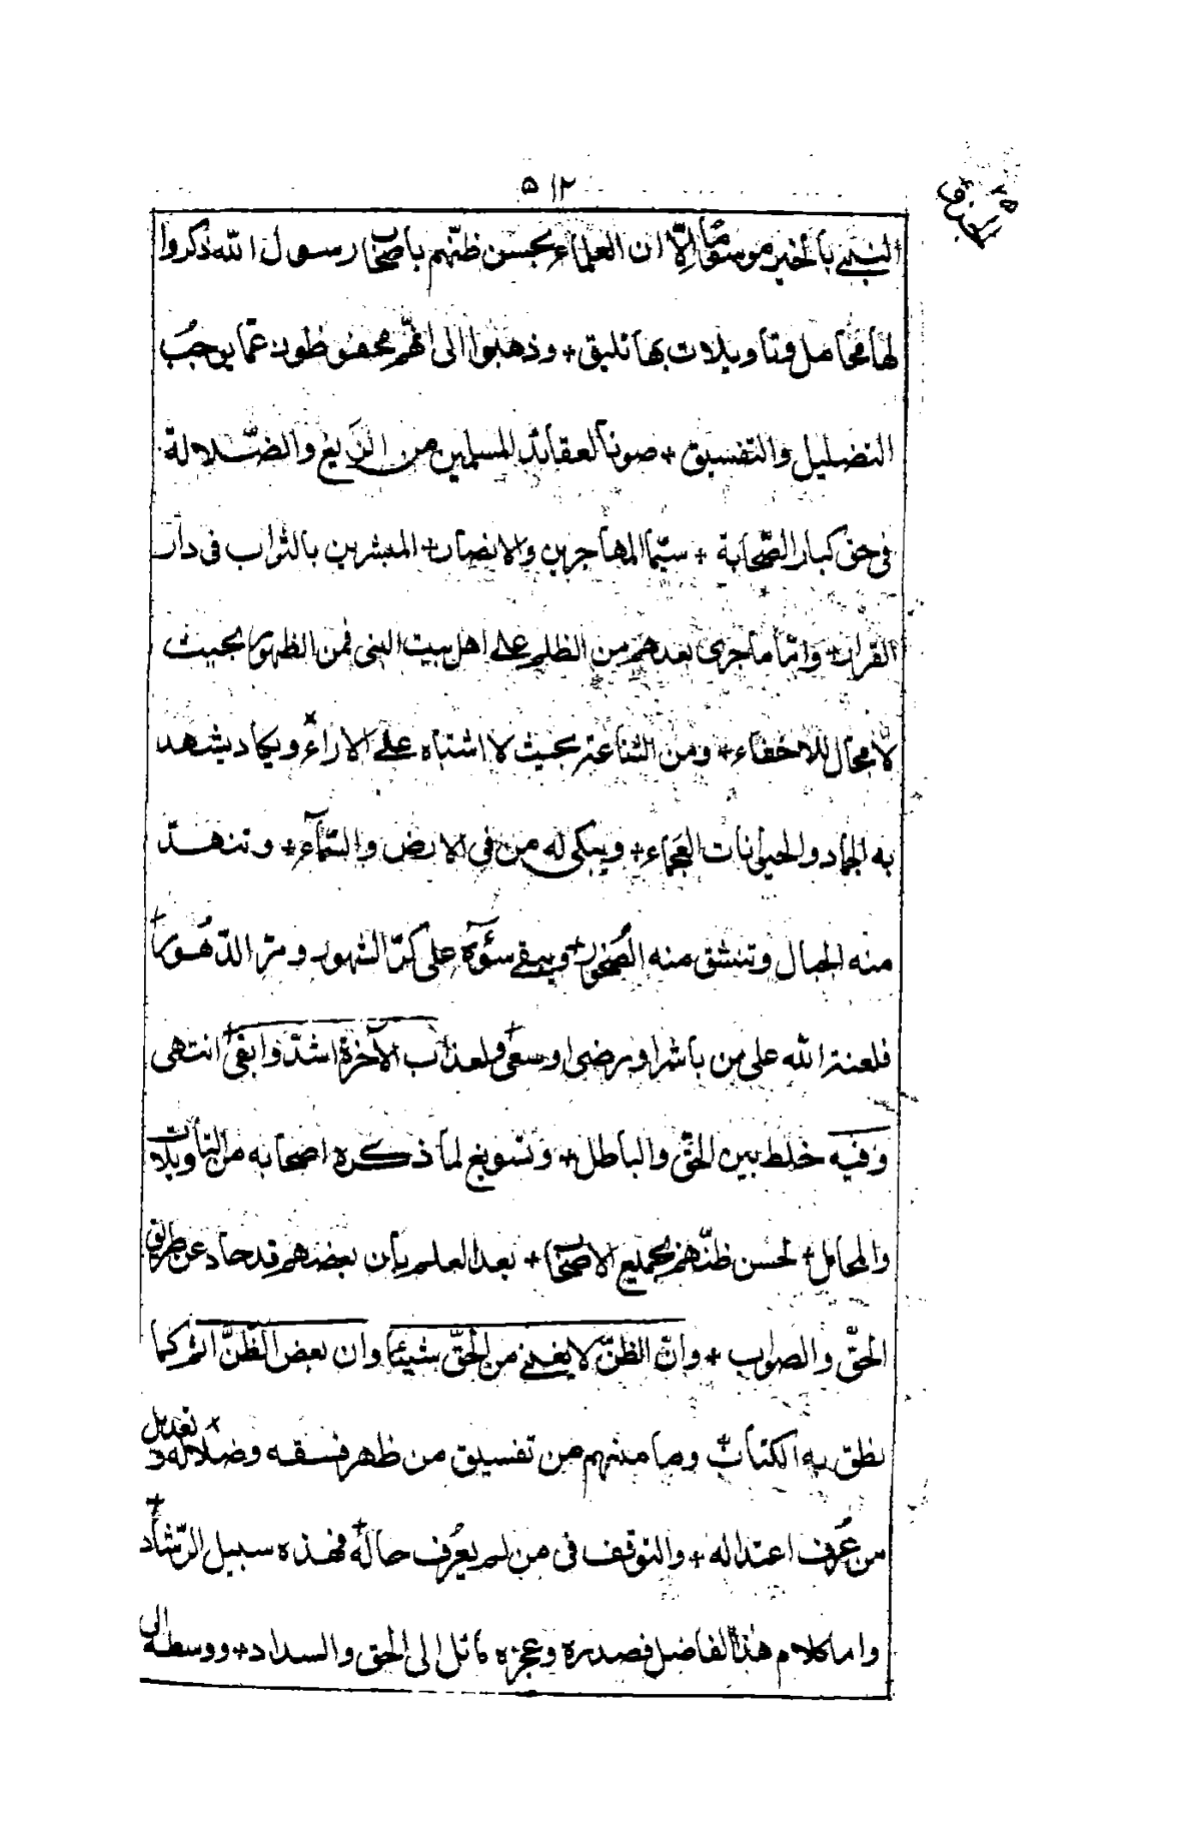 ۵۱۲
النبي بالخير موسوما الّا ان العلماء بحسن ظنّهم باصحاب رسول الله ذكروا
لها محامل وتاويلات بها تليق + وذهبوا الى انّهم محفوظون عمّا يوجبُ
التضليل والتفسيق + صوناً لعقائد المسلمين من الزَّيغ والضّلالة
فى حق كبار الصّحابة + سيّما المهاجرين والانصار + المبشرين بالثواب فى دار
القرار + وامّا ما جرى بعدهم من الظلم على اهل بيت النبى فمن الظهور بحيث
لا مجال للاخفاء + ومن الشناعة بحيث لا اشتباه على الاراء ويكاد يشهد
به الجماد والحيوانات العجماء + ويبكى له من فى الارض والسّمآء + وتنهدّ
منه الجبال وتنشق منه الصُخور + ويبقے سوؤه على كرّ الشهور ومرّ الدّهُور +
فلعنة الله على من باشر او رضى او سعى + ولعذاب الآخرة اشدّ وابقى + انتهى
وفيه خلط بين الحقّ والباطل + وتسويغ لما ذكره اصحابه من التأويلات
والمحامل + لحسن ظنّهم بجميع الاصحاب + بعد العلم بأن بعضهم قد حاد عن طريق
الحقّ والصواب + وانّ الظنّ لا يغنے من الحقّ شيئا وان بعض الظنَّ اثم كما
نطق به الكتابُ وما منهم من تفسيق من ظهر فسقه وضلاله و تعديل
من عُرف اعتداله + والتوقف فى من لم يعُرف حاله + فهذه سبيل الرّشاد +
واما كلام هذا الفاضل فصدره وعجزه مائل الى الحق والسداد + ووسطه الى